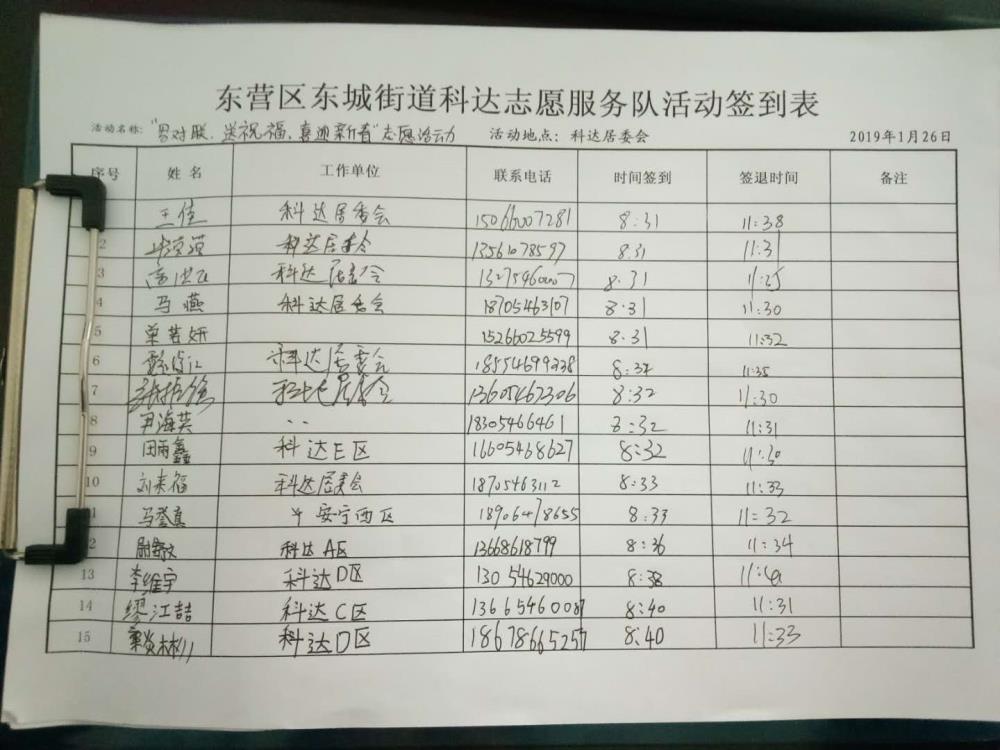 东营区东城街道科达志愿服务队活动签到表
活动名称："写对联、送祝福、喜迎新春"志愿活动 活动地点：科达居委会 2019年1月26日
序号 姓名 工作单位 联系电话 时间签到 签退时间 备注
王佳 科达居委会 15066007281 8:31 11:38
2 科达居委会 13561078597 8:31 11:31
3 科达居委会 13275460007 8:31 11:25
4 马燕 科达居委会 18705463107 8:31 11:30
5 单若妍 15266025599 8:31 11:32
6 科达居委会 18554699238 8:32 11:35
7 13605462306 8:32 11:30
8 尹海英 .. 18305466461 8:32 11:31
9 田雨鑫 科达E区 16605468627 8:32 11:30
10 刘来福 科达居委会 18705463112 8:33 11:33
马登真 安宁西区 18906478655 8:33 11:32
2 科达A区 13668618799 8:36 11:34
13 李维宇 科达D区 13054629000 8:38
14 缪江喆 科达C区 13665460087 8:40 11:31
15 科达D区 18678665257 8:40 11:33